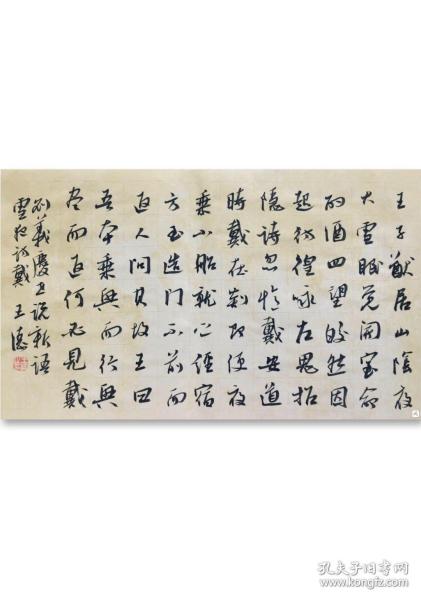 王子猷居山陰夜
大雪眠覺開室命
酌酒四望皎然因
起彷徨詠左思招
隱詩忽憶戴安道
時戴在剡即便夜
乘小船就之經宿
方至造門不前而
返人問其故王曰
吾本乘興而行興
尽而返何必見戴
劉義慶世说新语
雪夜訪戴 王
孔夫子旧书网
kongfz.com